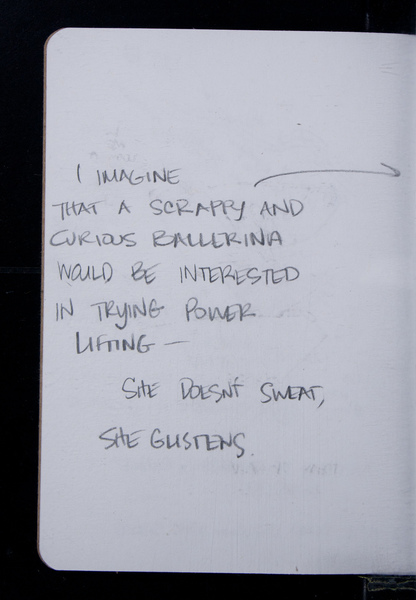 I IMAGINE
THAT A SCRAPPY AND
CURIOUS BALLERINA
WOULD BE INTERESTED
IN TRYING POWER
LIFTING —
SHE DOESNT SWEAT,
SHE GLISTENS.